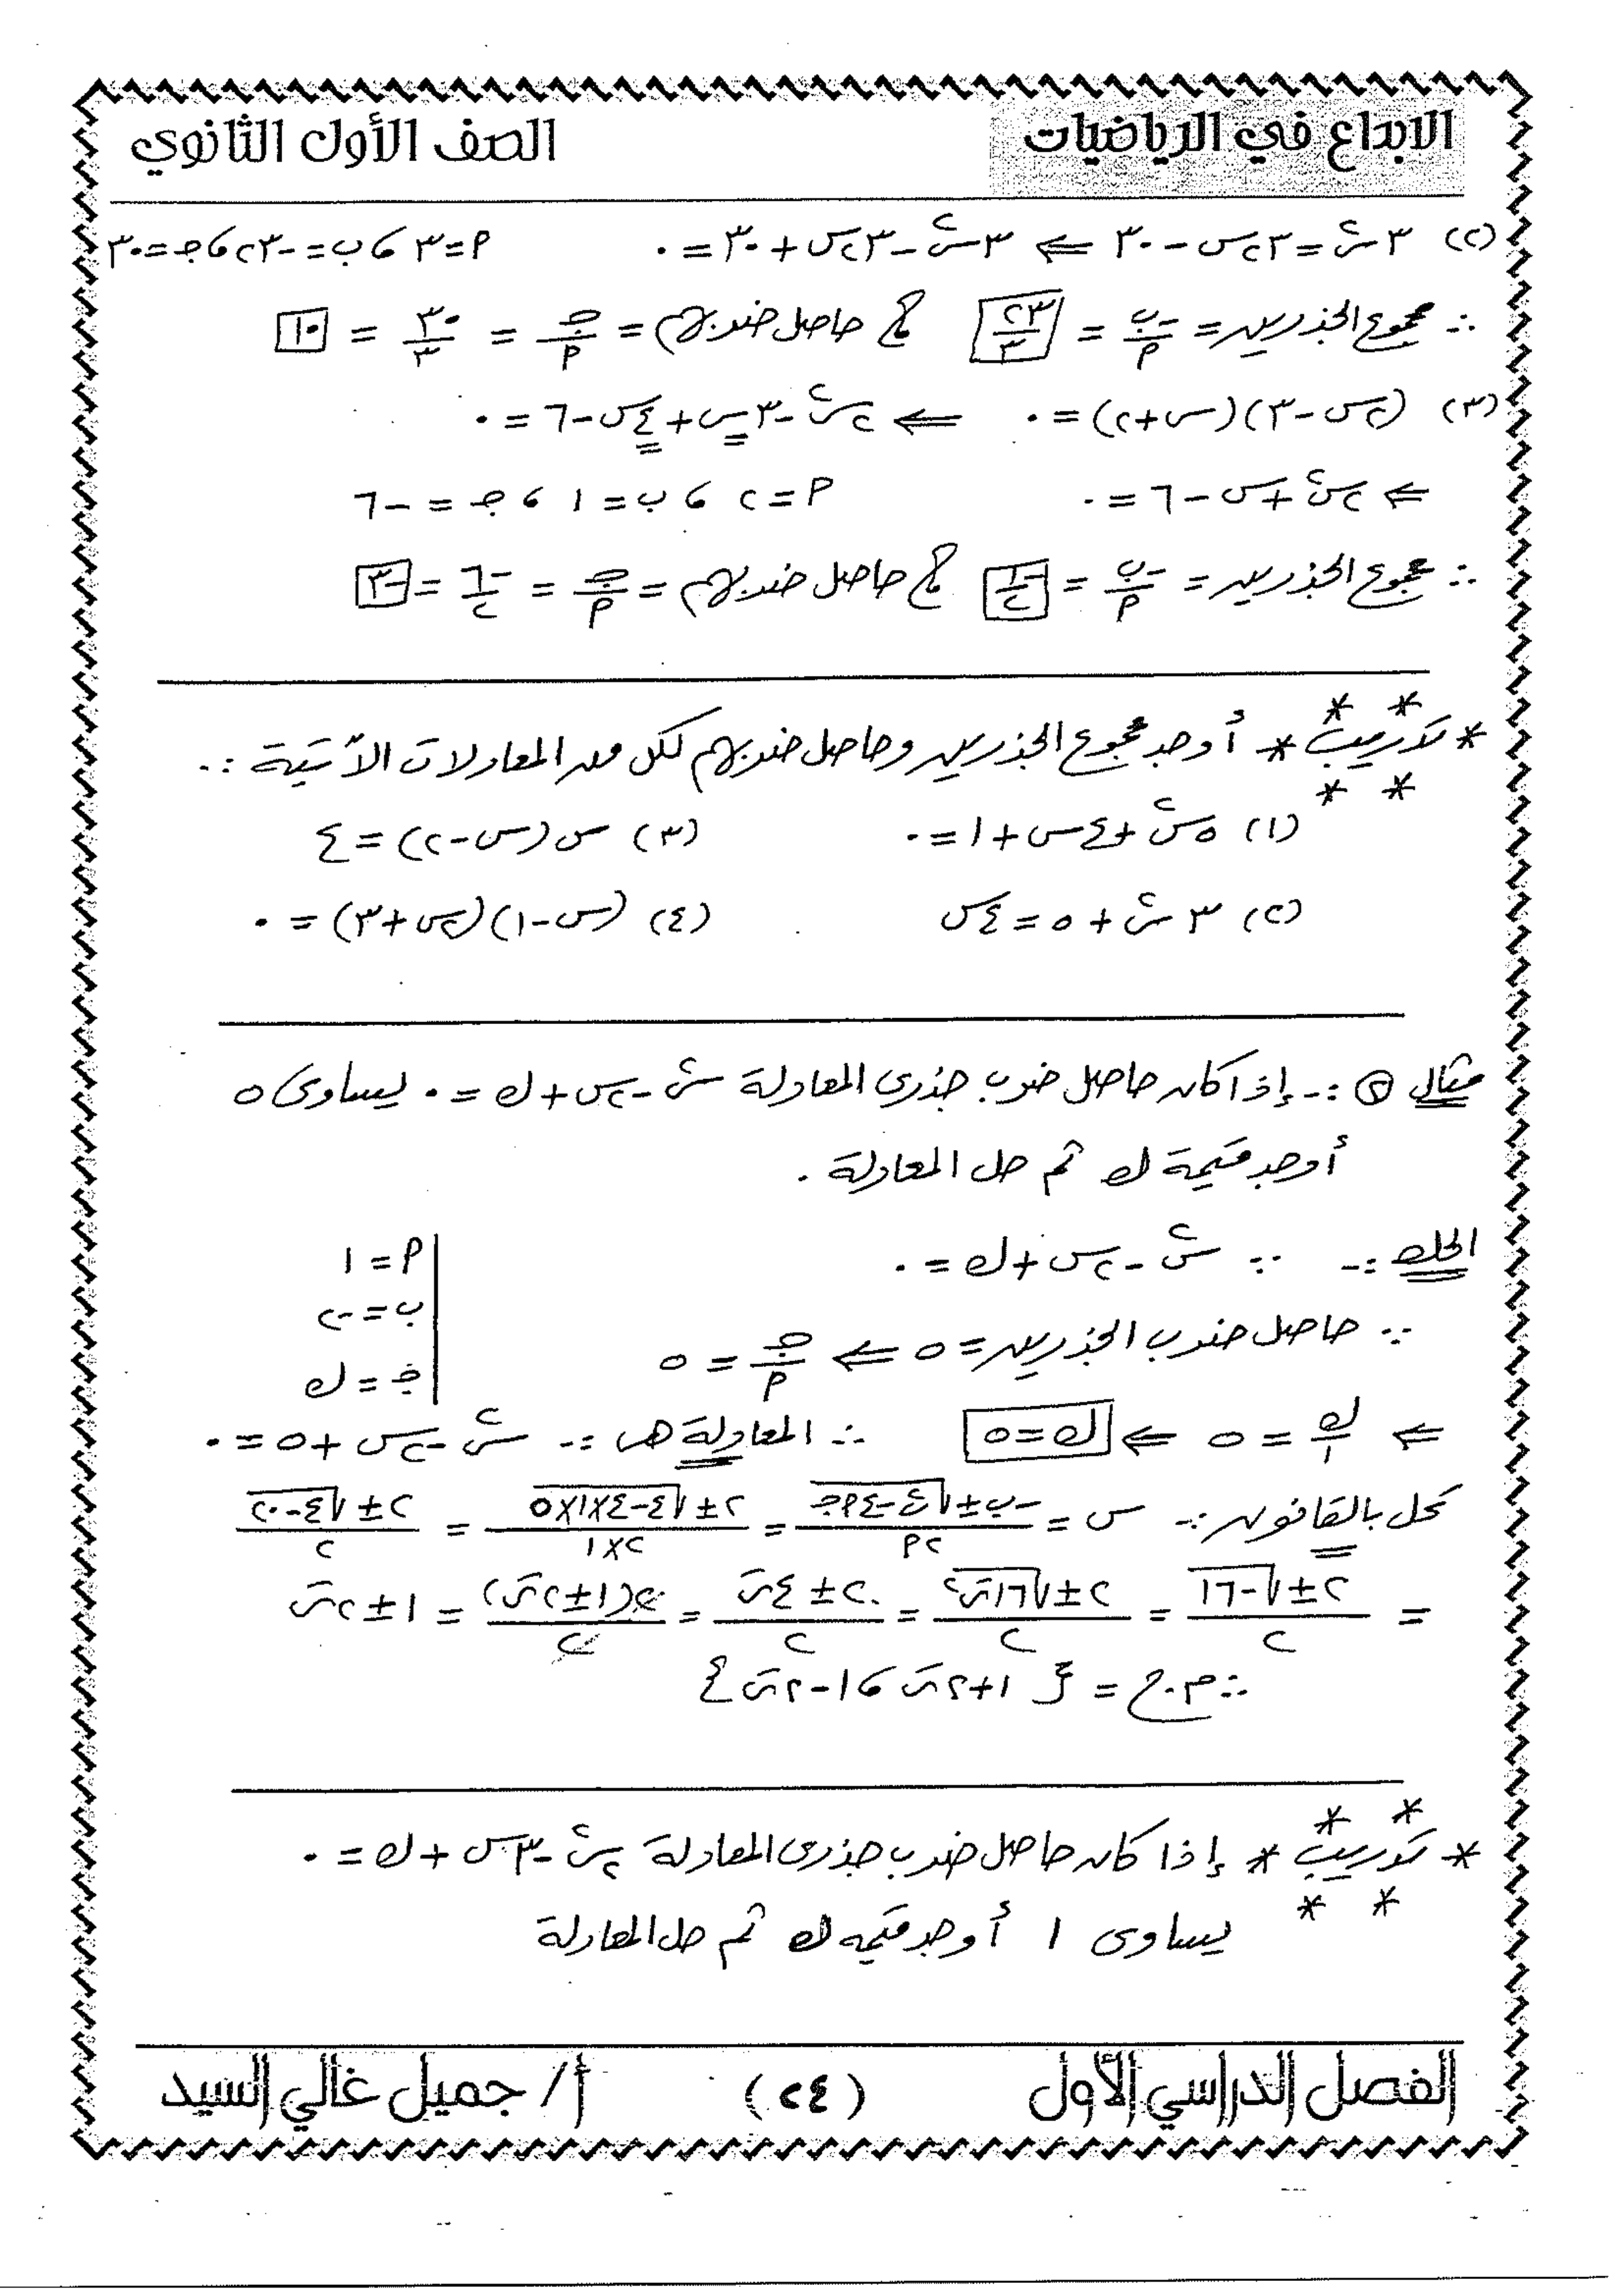 الابداع في الرياضيات
الصف الأول الثانوي
(٢) ٣س٢ = ٢٣س - ٣٠ ⇐ ٣س٢ - ٢٣س + ٣٠ = ٠ أ = ٣ ، ب = -٢٣ ، جـ = ٣٠
∴ مجموع الجذرين = -ب/أ = ٢٣/٣ ، حاصل ضربهم = جـ/أ = ٣٠/٣ = ١٠
(٣) (٢س - ٣)(س + ٢) = ٠ ⇐ ٢س٢ - ٣س + ٤س - ٦ = ٠
⇐ ٢س٢ + س - ٦ = ٠ أ = ٢ ، ب = ١ ، جـ = -٦
∴ مجموع الجذرين = -ب/أ = -١/٢ ، حاصل ضربهم = جـ/أ = -٦/٢ = -٣
* تدريب * أوجد مجموع الجذرين وحاصل ضربهم لكل من المعادلات الآتية :-
(١) ٥س٢ + ٤س + ١ = ٠ (٣) س(س - ٢) = ٤
(٢) ٣س٢ + ٥ = ٤س (٤) (س - ١)(٢س + ٣) = ٠
مثال ٢ :- إذا كان حاصل ضرب جذرى المعادلة س٢ - ٢س + ك = ٠ يساوى ٥
أوجد قيمة ك ثم حل المعادلة .
الحل :- ∵ س٢ - ٢س + ك = ٠ أ = ١
ب = -٢
∵ حاصل ضرب الجذرين = ٥ ⇐ جـ/أ = ٥
جـ = ك
⇐ ك/١ = ٥ ⇐ ك = ٥ ∴ المعادلة هى :- س٢ - ٢س + ٥ = ٠
نحل بالقانون :- س = (-ب ± √(ب٢ - ٤أجـ))/٢أ = (٢ ± √(٤ - ٤×١×٥))/٢×١ = (٢ ± √(٤ - ٢٠))/٢
= (٢ ± √-١٦)/٢ = (٢ ± √(١٦ت٢))/٢ = (٢ ± ٤ت)/٢ = ٢(١ ± ٢ت)/٢ = ١ ± ٢ت
∴ م.ح = { ١+٢ت ، ١-٢ت }
* تدريب * إذا كان حاصل ضرب جذرى المعادلة ٢س٢ - ٣س + ك = ٠
يساوى ١ أوجد قيمه ك ثم حل المعادلة
الفصل الدراسي الأول
(٢٤)
أ/ جميل غالي السيد